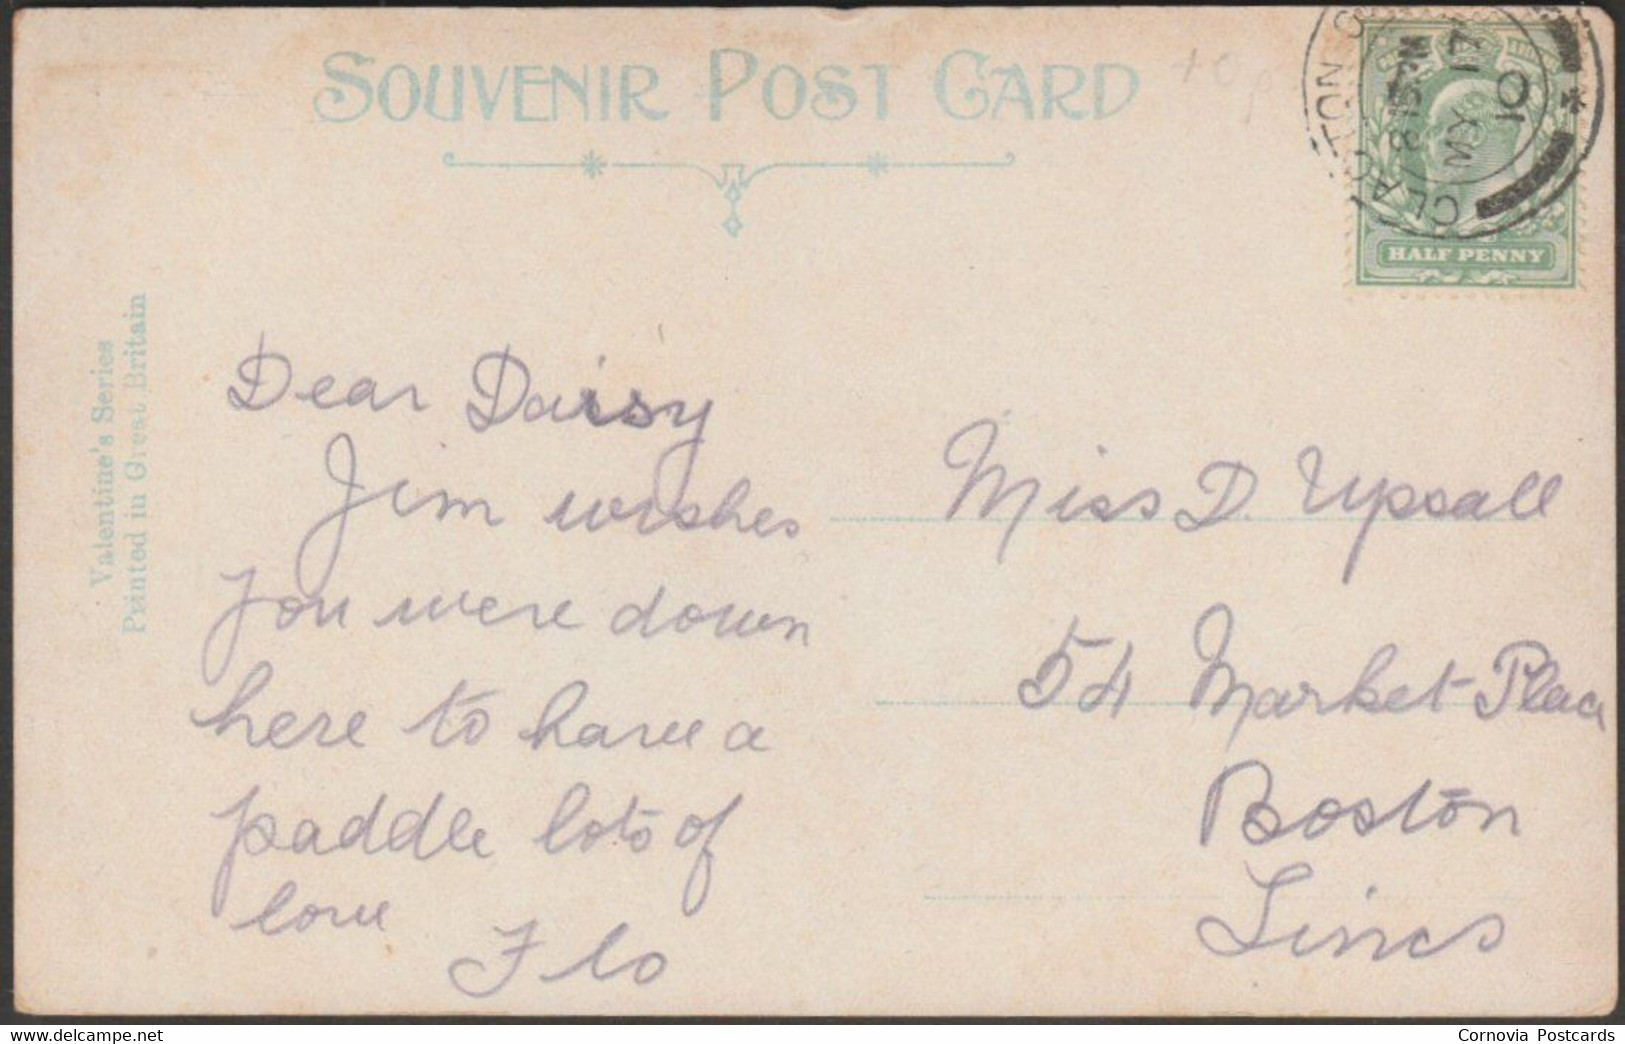 SOUVENIR POST CARD
Valentine's Series
Printed in Great Britain
CLACTON
8 15 PM
MY 17
10
HALF PENNY
Dear Daisy
Jim wishes
you were down
here to have a
paddle lots of
love
Flo
Miss D. Upsall
54 Market Place
Boston
Lincs
Cornovia Postcards